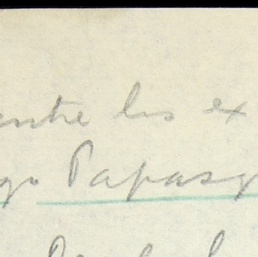 entre los ex
go Papasq